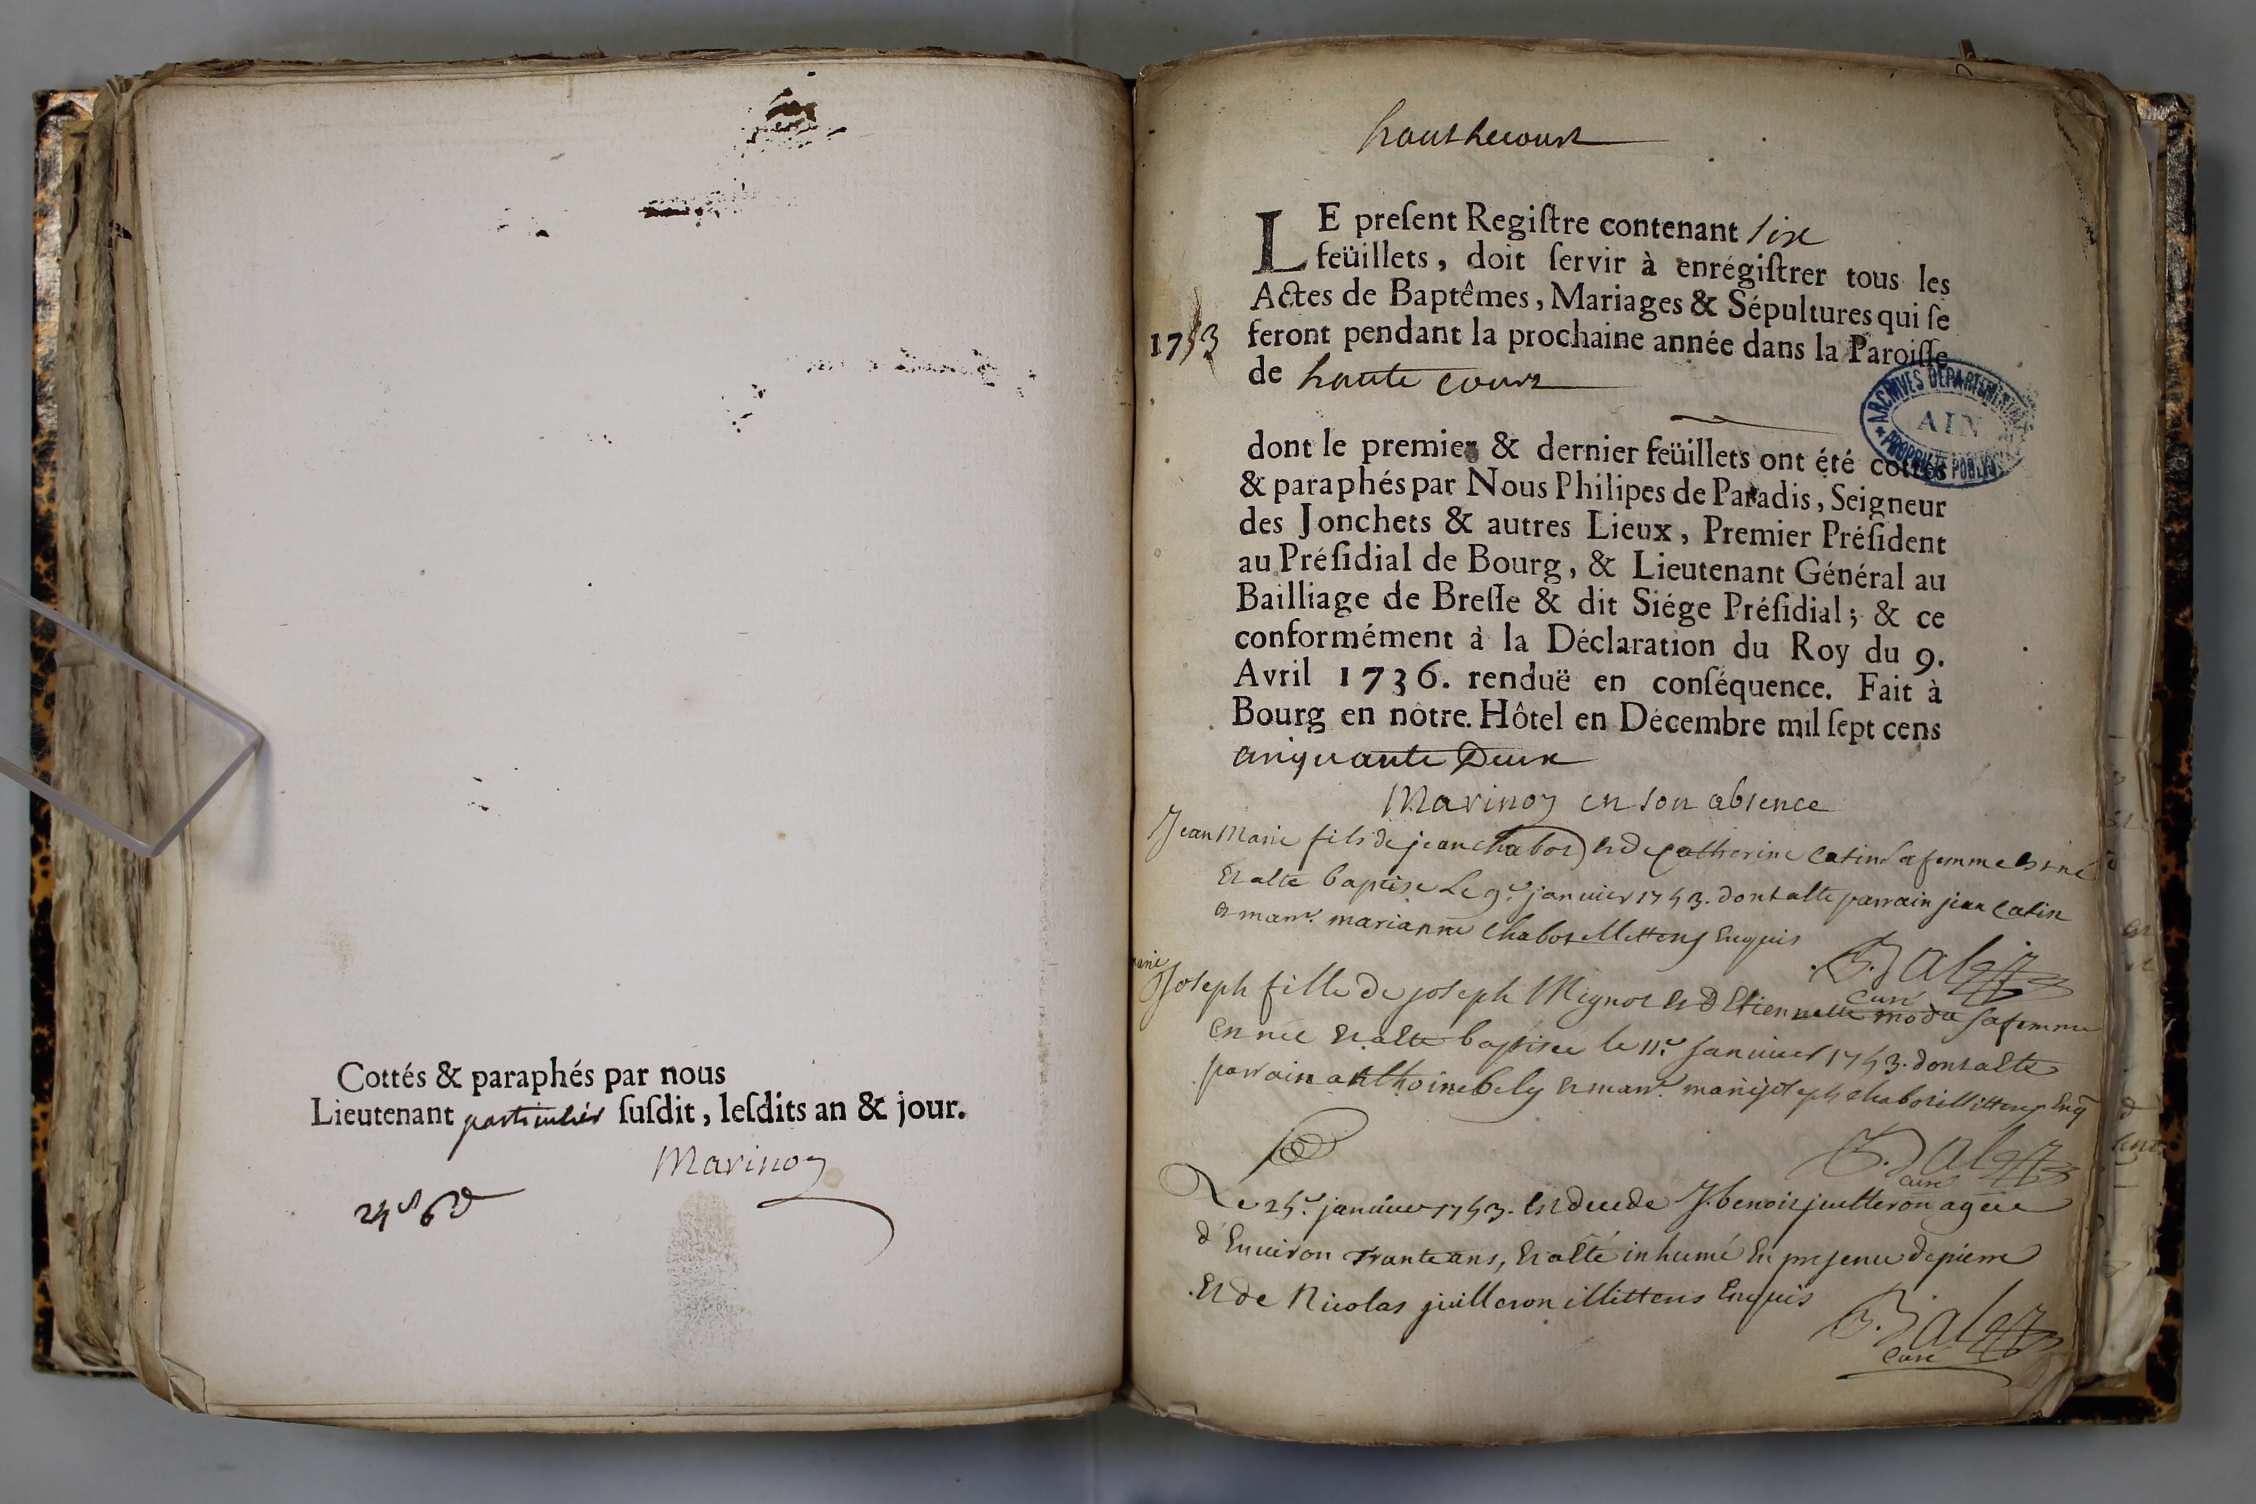 Cottés & paraphés par nous
Lieutenant particulier ſuſdit, leſdits an & jour.
Marinon
hauthecourt
LE preſent Regiſtre contenant six
feüillets, doit ſervir à enrégiſtrer tous les
Actes de Baptêmes, Mariages & Sépultures qui ſe
1753 feront pendant la prochaine année dans la Paroiſſe
de haute court
ARCHIVES DEPARTEMENTALES
AIN
PROPRIETE PUBLIQUE
dont le premier & dernier feüillets ont été cottés
& paraphés par Nous Philipes de Paradis, Seigneur
des Jonchets & autres Lieux, Premier Préſident
au Préſidial de Bourg, & Lieutenant Général au
Bailliage de Breſſe & dit Siége Préſidial; & ce
conformément à la Déclaration du Roy du 9.
Avril 1736. renduë en conſéquence. Fait à
Bourg en nôtre Hôtel en Décembre mil ſept cens
cinquante Deux
Marinon en son absence
Jean Marie fils de jean chabot et de Catherine Catin sa femme est né
Et a été baptise Le 9.e janvier 1753. dont a été parrain jean Catin
et marr.e marianne chabot illitterés Enquis
curé
marie
Joseph fille de joseph Mignot et d Etiennette sa femme
est née Et a été baptisée le 11.e Janvier 1753. dont a été
parrain anthoine bely et marr.e marie joseph chabot illitterés Enq
curé
Le 25.e janvier 1753. est decede J. benoit juilleron agée
d'Environ trante ans, Et a été inhumé En presence de pierre
Et de Nicolas juilleron illitterés Enquis
curé